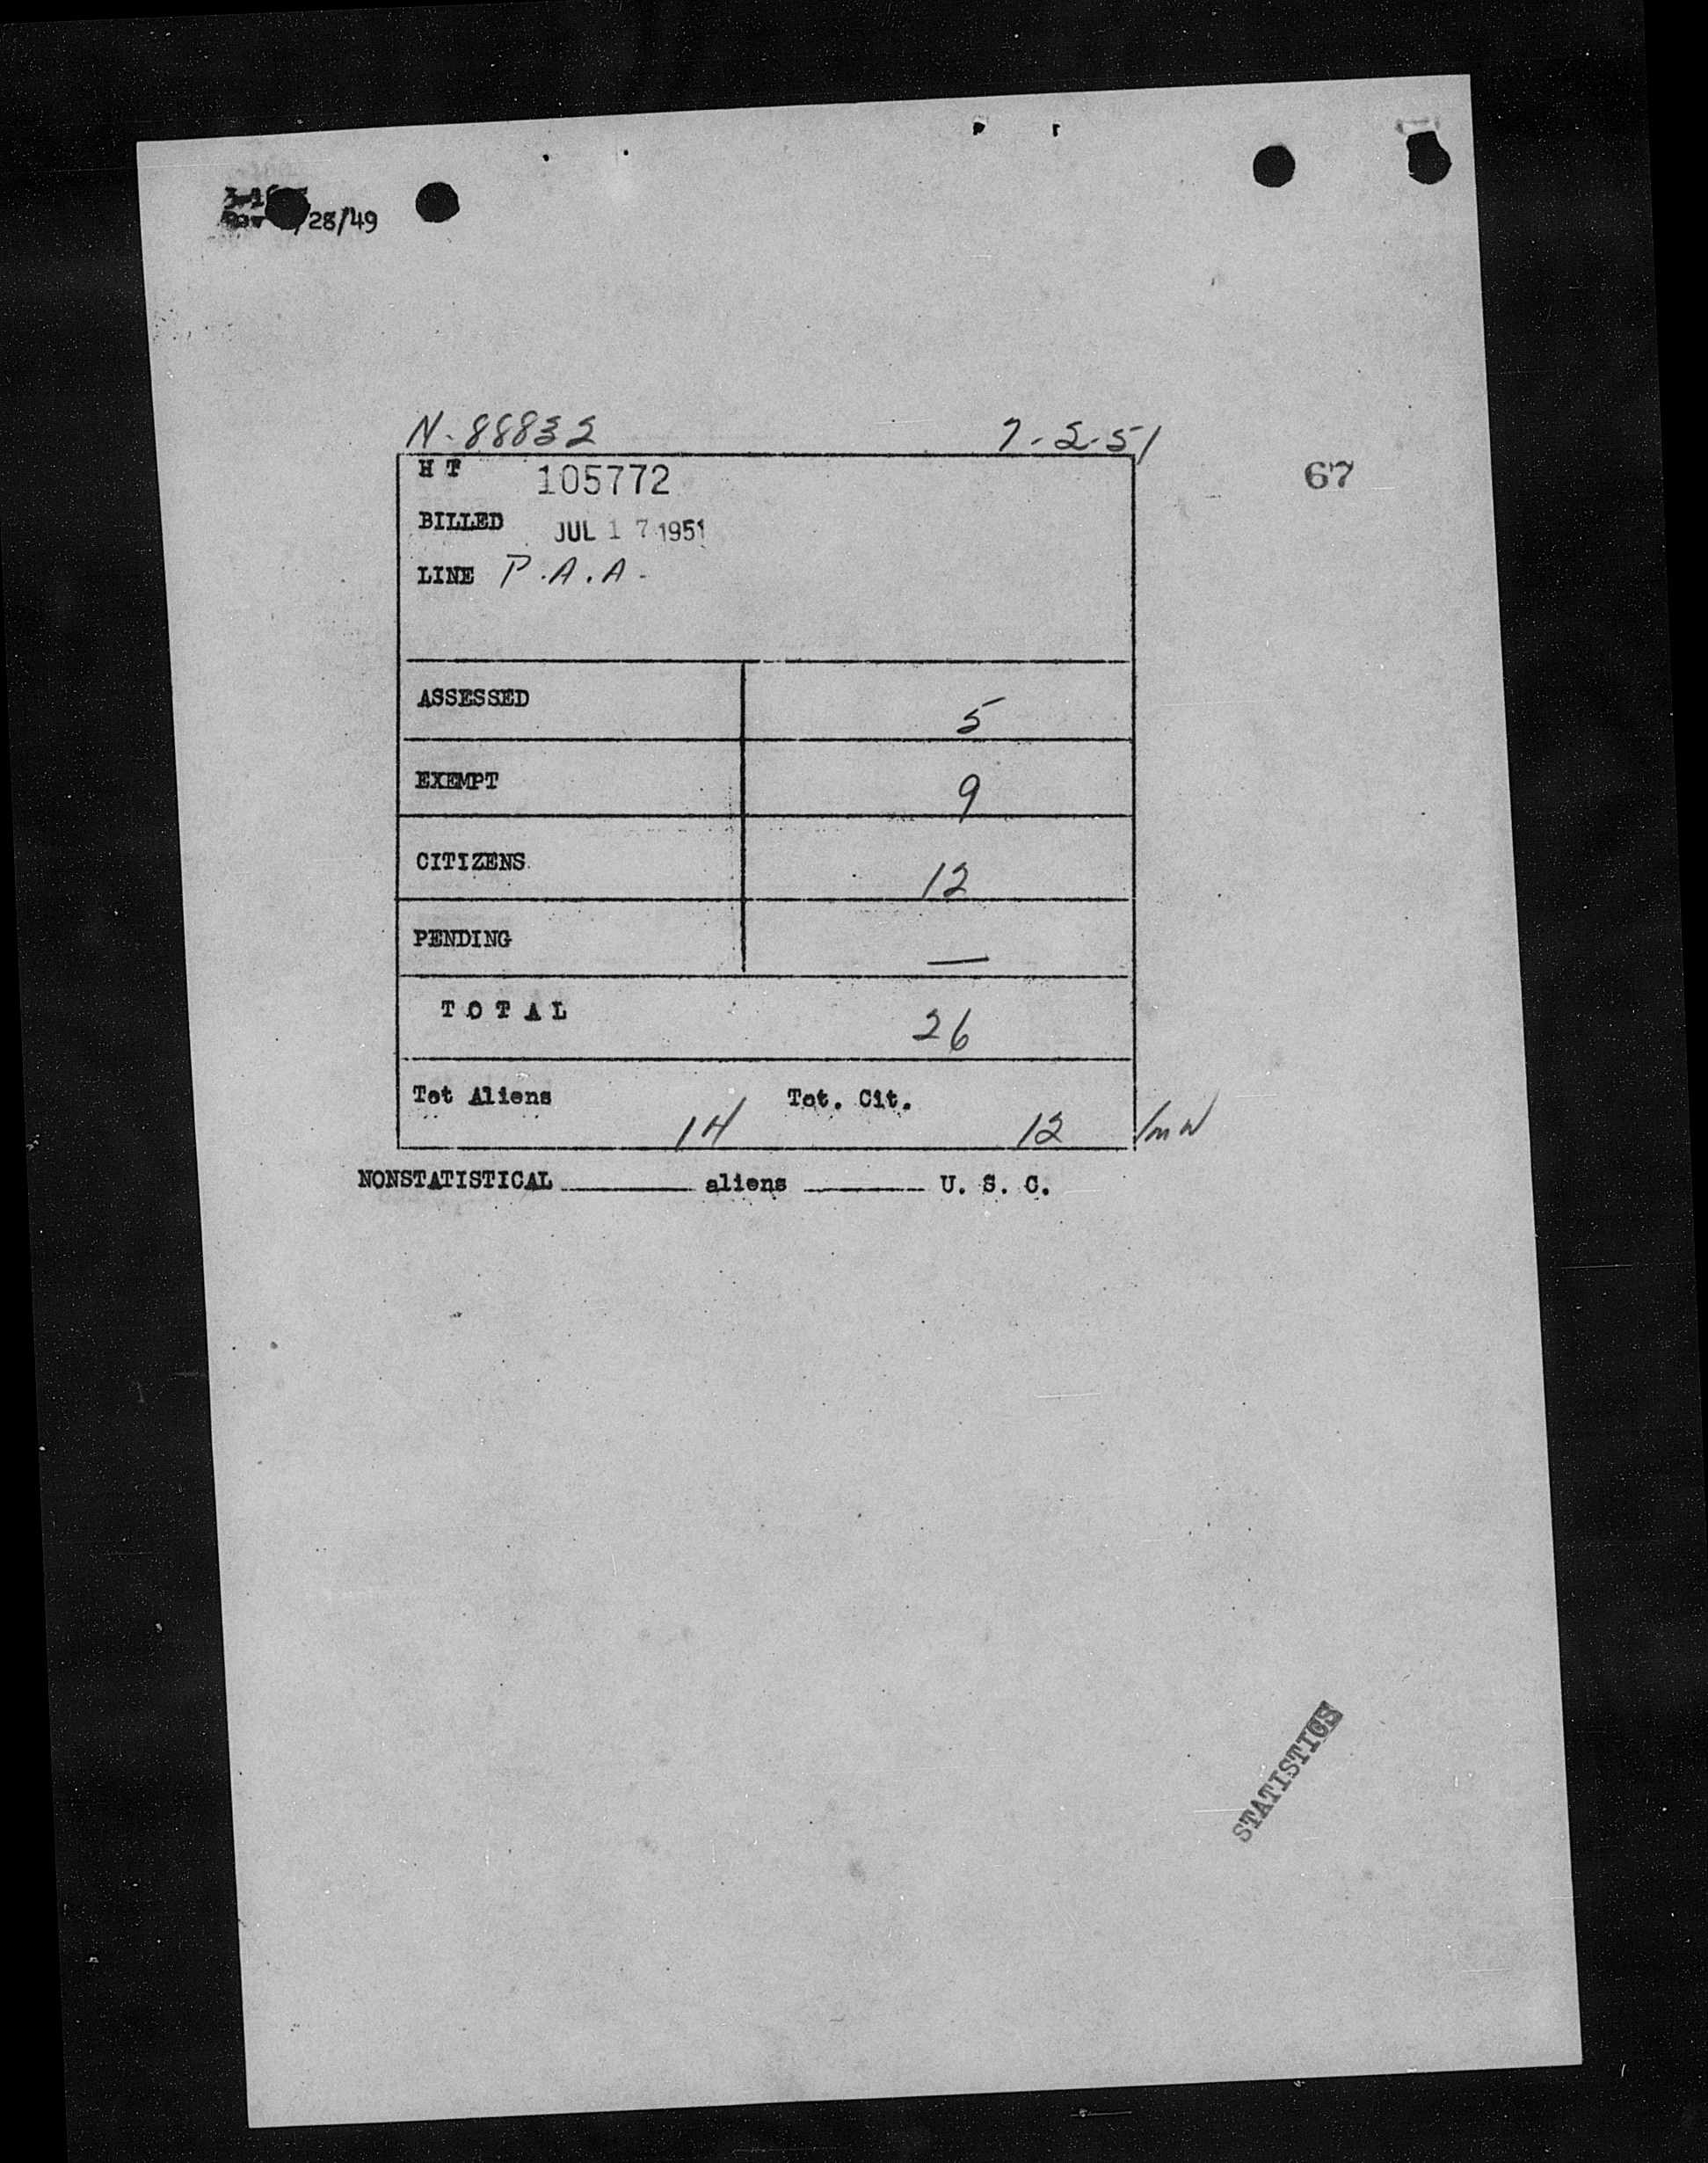 28/49
N-88832 7-2-51
H T 105772
67
BILLED JUL 17 1951
LINE P.A.A.
ASSESSED 5
EXEMPT 9
CITIZENS 12
PENDING —
TOTAL 26
Tot Aliens 14 Tot. Cit. 12
NONSTATISTICAL ______ aliens ______ U. S. C.
STATISTICS